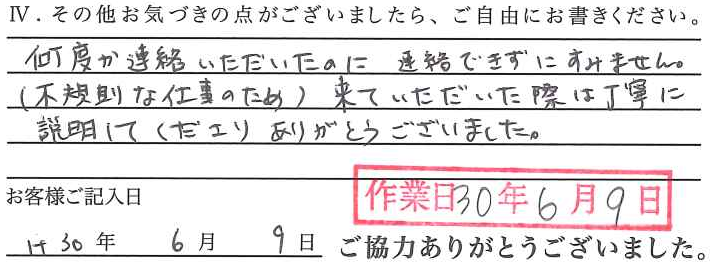 Ⅳ．その他お気づきの点がございましたら、ご自由にお書きください。
何度か連絡いただいたのに 連絡できずにすみません。
(不規則な仕事のため) 来ていただいた際は丁寧に
説明してくださり ありがとうございました。
お客様ご記入日
作業日30年6月9日
H30年 6月 9日 ご協力ありがとうございました。